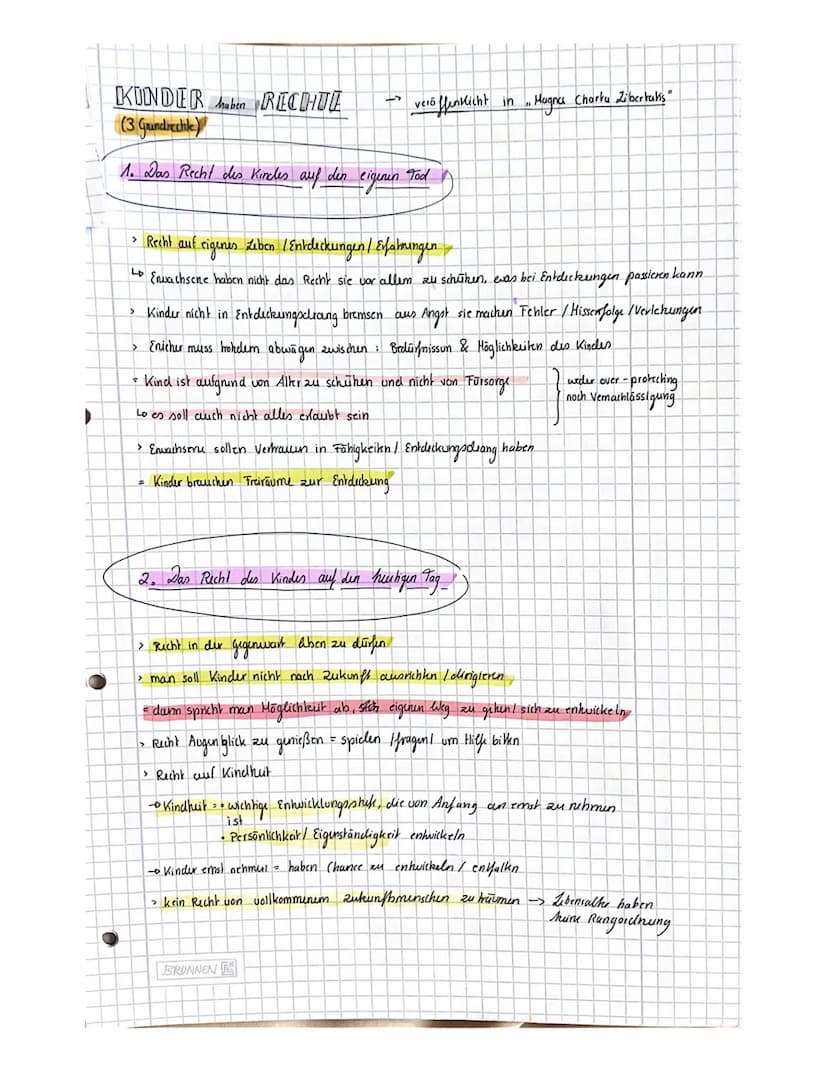 KINDER haben RECHTE → veröffentlicht in „Magna Charta Libertatis"
(3 Grundrechte)
1. Das Recht des Kindes auf den eigenen Tod
> Recht auf eigenes Leben / Entdeckungen / Erfahrungen
↳ Erwachsene haben nicht das Recht sie vor allem zu schützen, was bei Entdeckungen passieren kann
> Kinder nicht in Entdeckungsdrang bremsen aus Angst sie machen Fehler / Misserfolge / Verletzungen
> Erzieher muss trotzdem abwägen zwischen : Bedürfnissen & Möglichkeiten des Kindes
= Kind ist aufgrund von Alter zu schützen und nicht von Fürsorge
↳ es soll auch nicht alles erlaubt sein
weder over-protecting
noch Vernachlässigung
> Erwachsene sollen Vertrauen in Fähigkeiten / Entdeckungsdrang haben
= Kinder brauchen Freiräume zur Entdeckung
2. Das Recht des Kindes auf den heutigen Tag
> Recht in der Gegenwart leben zu dürfen
> man soll Kinder nicht nach Zukunft ausrichten / dirigieren
= dann spricht man Möglichkeit ab, sich eigenen Weg zu gehen / sich zu entwickeln
> Recht Augenblick zu genießen = spielen / fragen / um Hilfe bitten
> Recht auf Kindheit
→ Kindheit = • wichtige Entwicklungsstufe, die von Anfang an ernst zu nehmen
ist
• Persönlichkeit / Eigenständigkeit entwickeln
→ Kinder ernst nehmen = haben Chance zu entwickeln / entfalten
> kein Recht von vollkommenem Zukunftsmenschen zu träumen → Lebensalter haben
keine Rangordnung
BRUNNEN